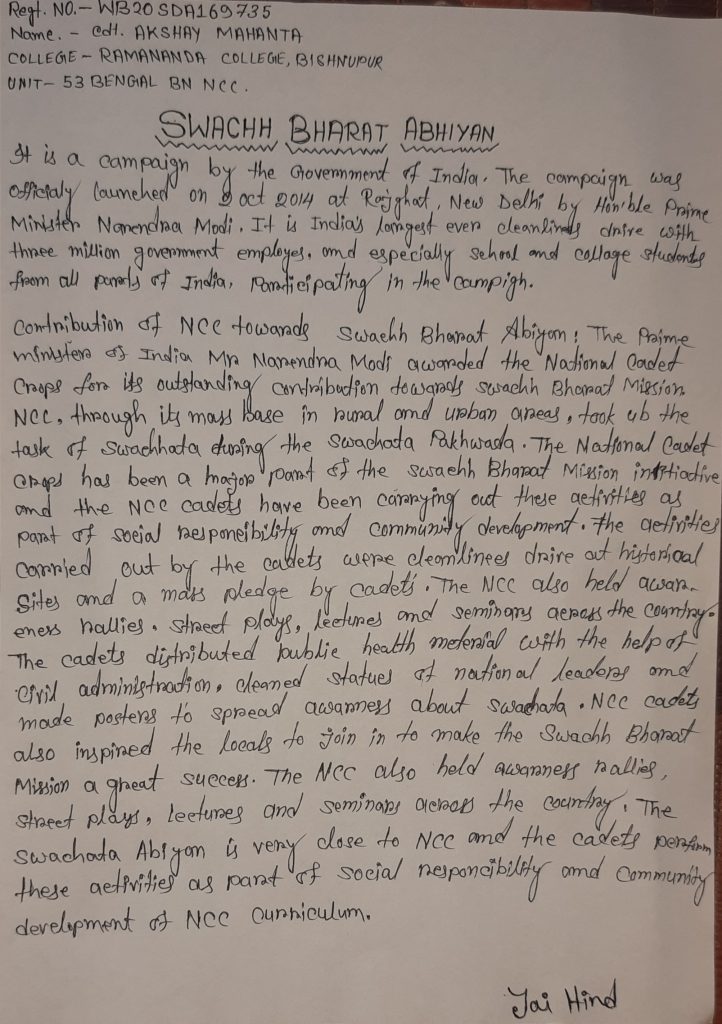 Regt. NO.- WB20SDA169735
Name. - cdt. AKSHAY MAHANTA
COLLEGE - RAMANANDA COLLEGE, BISHNUPUR
UNIT - 53 BENGAL BN NCC.
SWACHH BHARAT ABHIYAN
It is a campaign by the Government of India. The campaign was
officialy launched on 2 oct 2014 at Rajghat, New Delhi by Hon'ble Prime
Minister Narendra Modi. It is India's largest ever cleanlines drive with
three million government employes. and especially school and collage students
from all parts of India, Participating in the campigh.
Contribution of NCC towards Swachh Bharat Abiyan: The Prime
minister of India Mr Narendra Modi awarded the National Cadet
Crops for its outstanding contribution towards swachh Bharat Mission.
NCC, through its mass base in rural and urban areas, took ub the
task of Swachhata during the Swachata Pakhwada. The National Cadet
crops has been a major part of the swachh Bharat Mission initiative
and the NCC cadets have been carrying out these activities as
part of social responcibility and community development. The activities
carried out by the cadets were cleanlinees drive at historical
Sites and a mass pledge by cadets. The NCC also held awar-
eners rallies. street plays, lectures and seminars across the country.
The cadets distributed public health meterial with the help of
civil administration, cleaned statues of national leaders and
made posters to spread awarness about swachata. NCC cadets
also inspired the locals to join in to make the Swachh Bharat
Mission a great success. The NCC also held awarness rallies,
street plays, lectures and seminars across the country. The
swachata Abiyan is very close to NCC and the cadets perform
these activities as part of social responcibility and community
development of NCC curriculum.
Jai Hind